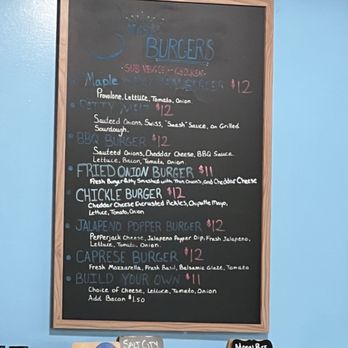 BURGERS
SUB VEGGIE or CHICKEN
Maple BURGER $12
Provolone, Lettuce, Tomato, Onion
PATTY MELT $12
Sauteed Onions, Swiss, "Smash" Sauce, on Grilled
Sourdough.
BBQ BURGER $12
Sauteed Onions, Cheddar Cheese, BBQ Sauce
Lettuce, Bacon, Tomato, Onion
FRIED ONION BURGER $11
Fresh Burger Patty Smashed with Thin Onions, and Cheddar Cheese
CHICKLE BURGER $12
Cheddar Cheese Encrusted Pickles, Chipotle Mayo,
Lettuce, Tomato, Onion
JALAPENO POPPER BURGER $12
Pepperjack Cheese, Jalapeno Popper Dip, Fresh Jalapeno,
Lettuce, Tomato, Onion.
CAPRESE BURGER $12
Fresh Mozzarella, Fresh Basil, Balsamic Glaze, Tomato
BUILD YOUR OWN $11
Choice of Cheese, Lettuce, Tomato, Onion
Add Bacon $1.50
SALT CITY